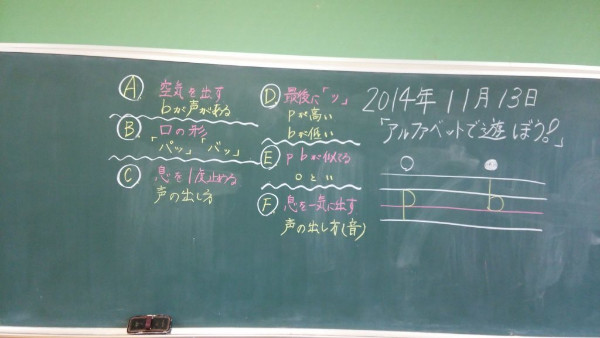 2014年11月13日
「アルファベットで遊ぼう!」
p
b
Ⓐ 空気を出す
bが声がある
Ⓑ 口の形
「パッ」「バッ」
Ⓒ 息を1度止める
声の出し方
Ⓓ 最後に「ッ」
pが高い
bが低い
Ⓔ p bが似てる
Ⓕ 息を一気に出す
声の出し方(音)